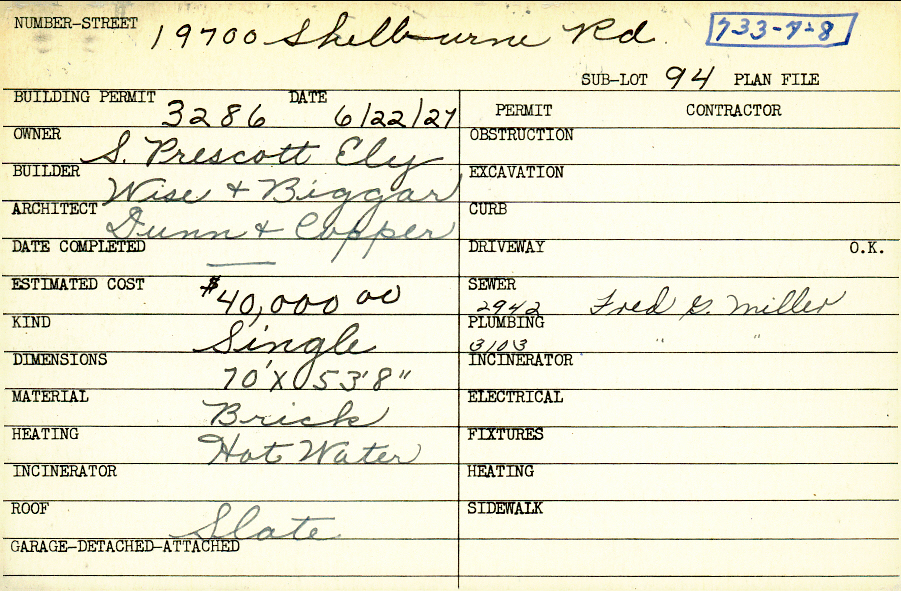 NUMBER-STREET 19700 Shelburne Rd. 733-7-8
SUB-LOT 94 PLAN FILE
BUILDING PERMIT 3286 DATE 6/22/27
PERMIT CONTRACTOR
OWNER S. Prescott Ely
OBSTRUCTION
BUILDER Wise & Biggar
EXCAVATION
ARCHITECT Dunn & Copper
CURB
DATE COMPLETED —
DRIVEWAY O.K.
ESTIMATED COST $40,000 00
SEWER 2942 Fred G. Miller
KIND Single
PLUMBING 3103 " "
DIMENSIONS 70' X 53'8"
INCINERATOR
MATERIAL Brick
ELECTRICAL
HEATING Hot Water
FIXTURES
INCINERATOR
HEATING
ROOF Slate
SIDEWALK
GARAGE-DETACHED-ATTACHED